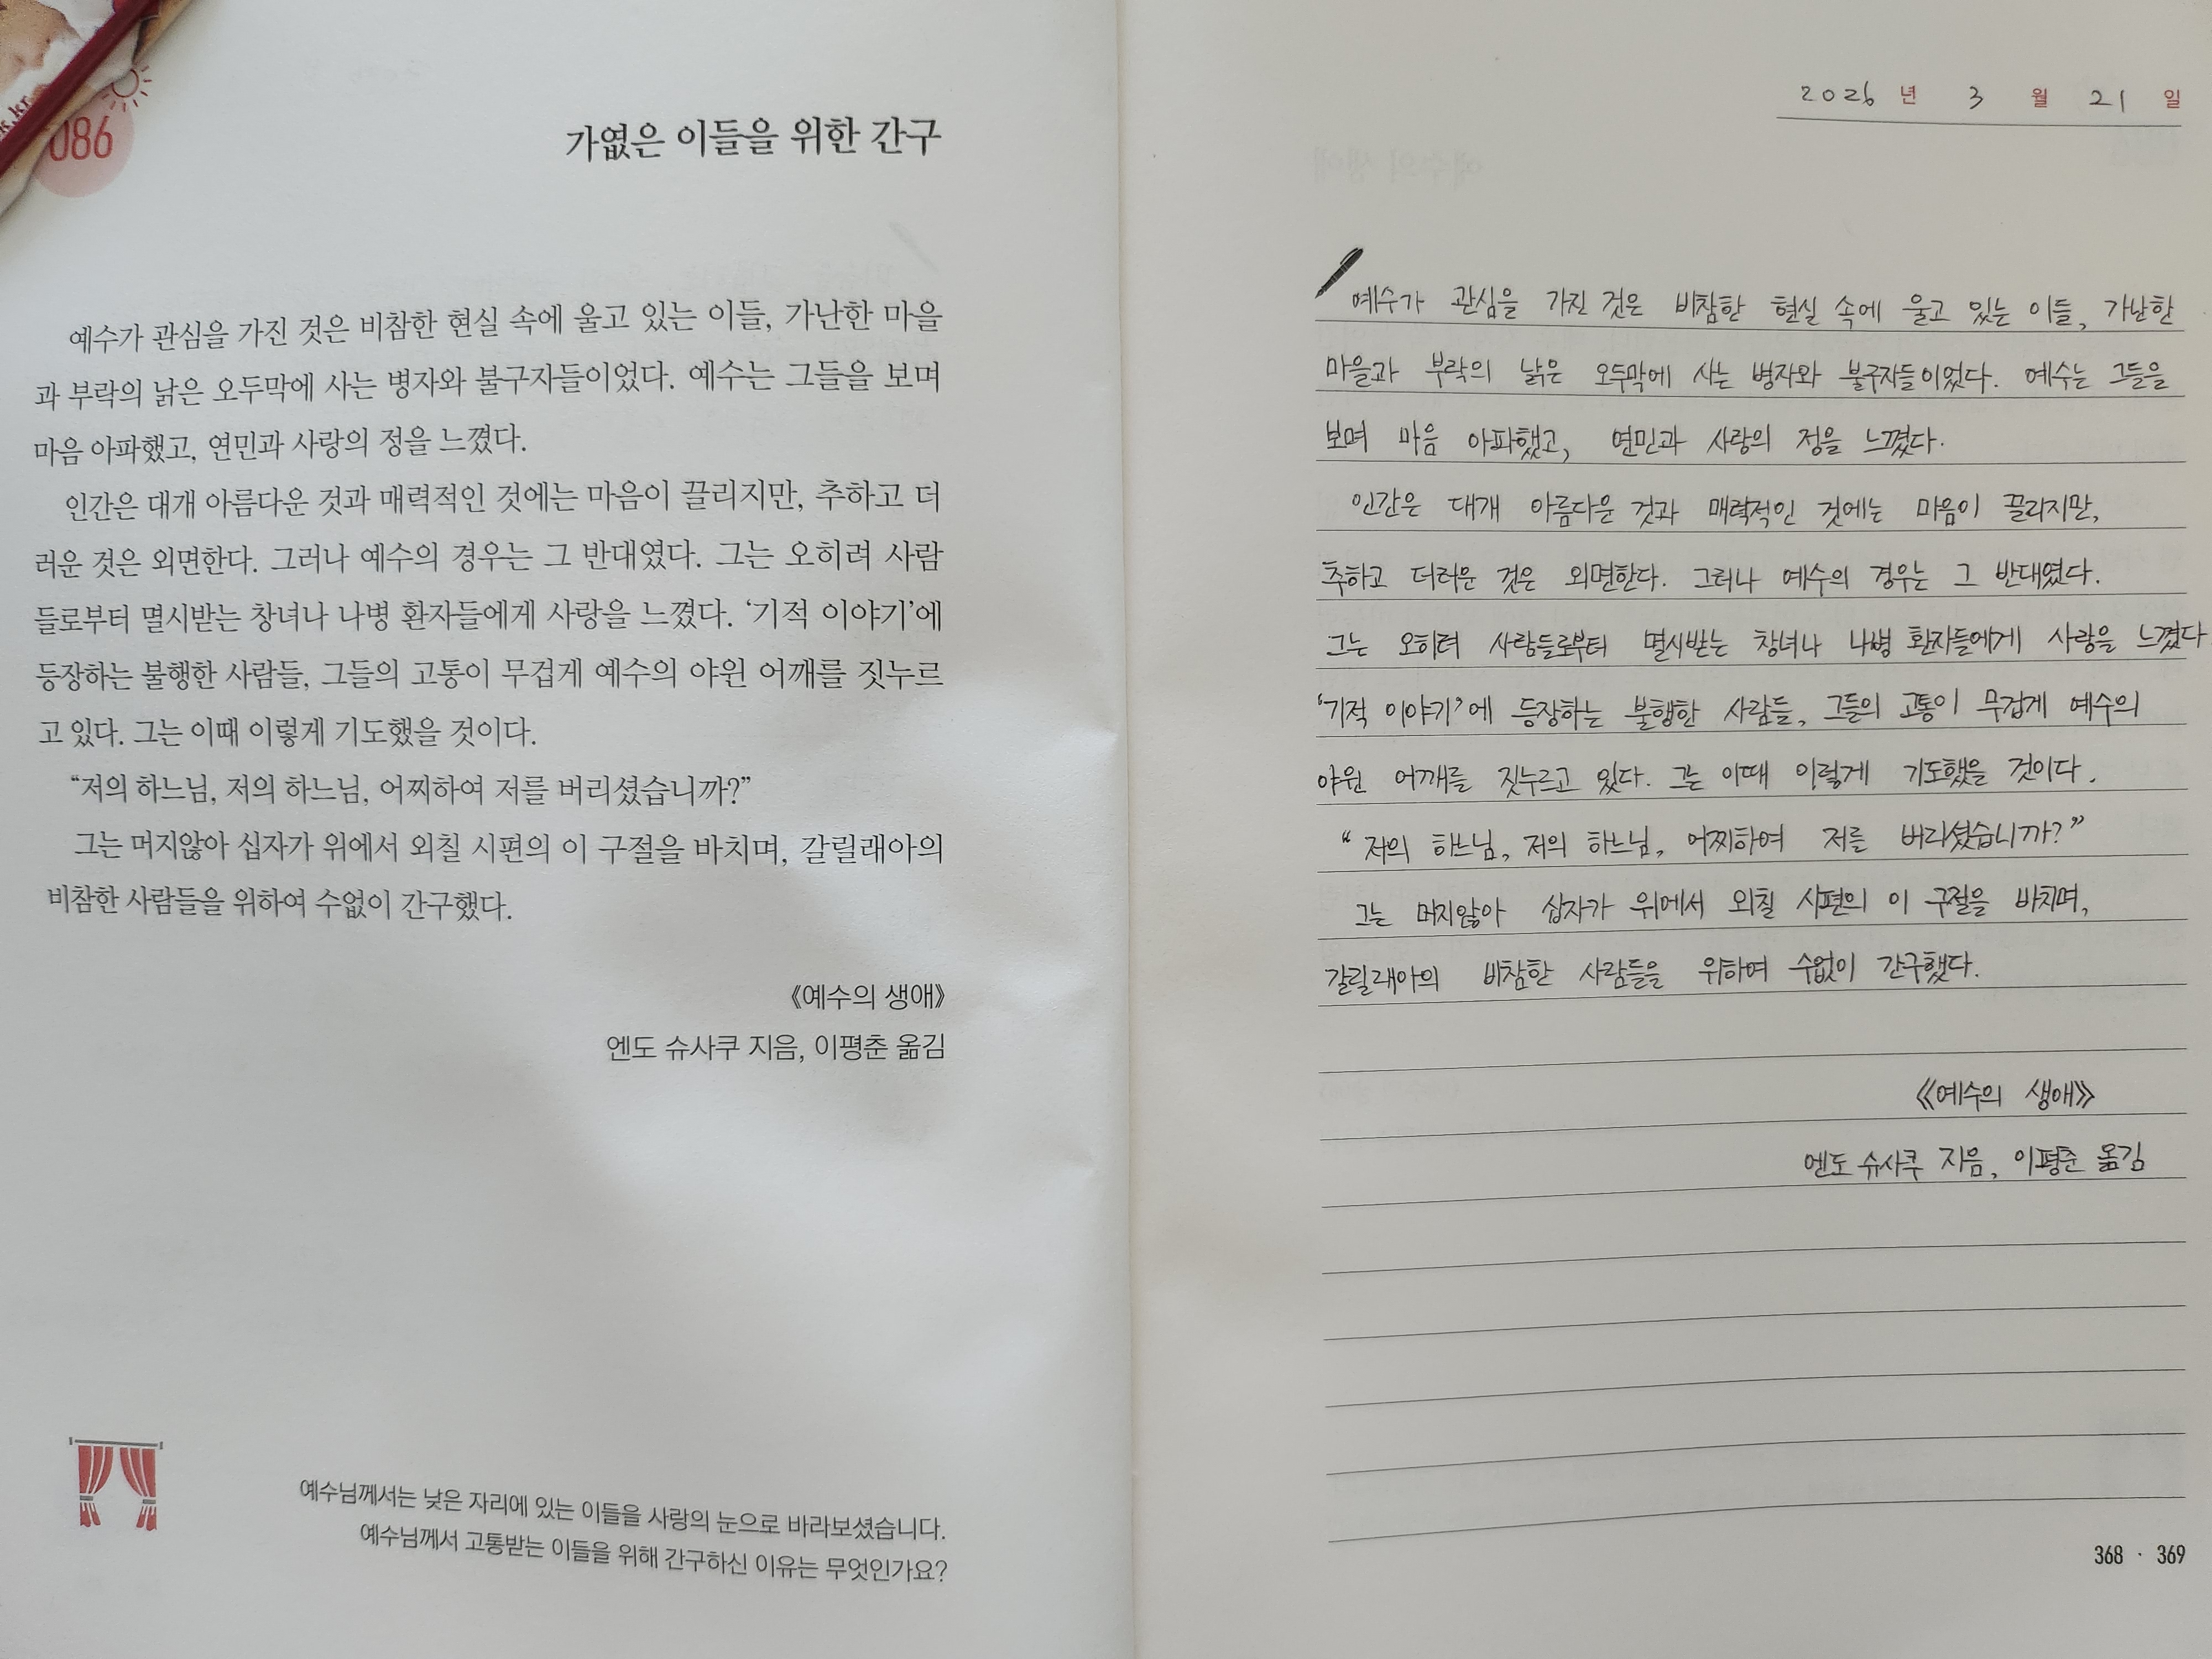 086
가엾은 이들을 위한 간구
예수가 관심을 가진 것은 비참한 현실 속에 울고 있는 이들, 가난한 마을
과 부락의 낡은 오두막에 사는 병자와 불구자들이었다. 예수는 그들을 보며
마음 아파했고, 연민과 사랑의 정을 느꼈다.
인간은 대개 아름다운 것과 매력적인 것에는 마음이 끌리지만, 추하고 더
러운 것은 외면한다. 그러나 예수의 경우는 그 반대였다. 그는 오히려 사람
들로부터 멸시받는 창녀나 나병 환자들에게 사랑을 느꼈다. ‘기적 이야기’에
등장하는 불행한 사람들, 그들의 고통이 무겁게 예수의 야윈 어깨를 짓누르
고 있다. 그는 이때 이렇게 기도했을 것이다.
“저의 하느님, 저의 하느님, 어찌하여 저를 버리셨습니까?”
그는 머지않아 십자가 위에서 외칠 시편의 이 구절을 바치며, 갈릴래아의
비참한 사람들을 위하여 수없이 간구했다.
《예수의 생애》
엔도 슈사쿠 지음, 이평춘 옮김
예수님께서는 낮은 자리에 있는 이들을 사랑의 눈으로 바라보셨습니다.
예수님께서 고통받는 이들을 위해 간구하신 이유는 무엇인가요?
2026 년 3 월 21 일
예수가 관심을 가진 것은 비참한 현실 속에 울고 있는 이들, 가난한
마을과 부락의 낡은 오두막에 사는 병자와 불구자들이었다. 예수는 그들을
보며 마음 아파했고, 연민과 사랑의 정을 느꼈다.
인간은 대개 아름다운 것과 매력적인 것에는 마음이 끌리지만,
추하고 더러운 것은 외면한다. 그러나 예수의 경우는 그 반대였다.
그는 오히려 사람들로부터 멸시받는 창녀나 나병 환자들에게 사랑을 느꼈다.
‘기적 이야기’에 등장하는 불행한 사람들, 그들의 고통이 무겁게 예수의
야윈 어깨를 짓누르고 있다. 그는 이때 이렇게 기도했을 것이다.
“저의 하느님, 저의 하느님, 어찌하여 저를 버리셨습니까?”
그는 머지않아 십자가 위에서 외칠 시편의 이 구절을 바치며,
갈릴래아의 비참한 사람들을 위하여 수없이 간구했다.
《예수의 생애》
엔도 슈사쿠 지음, 이평춘 옮김
368 · 369